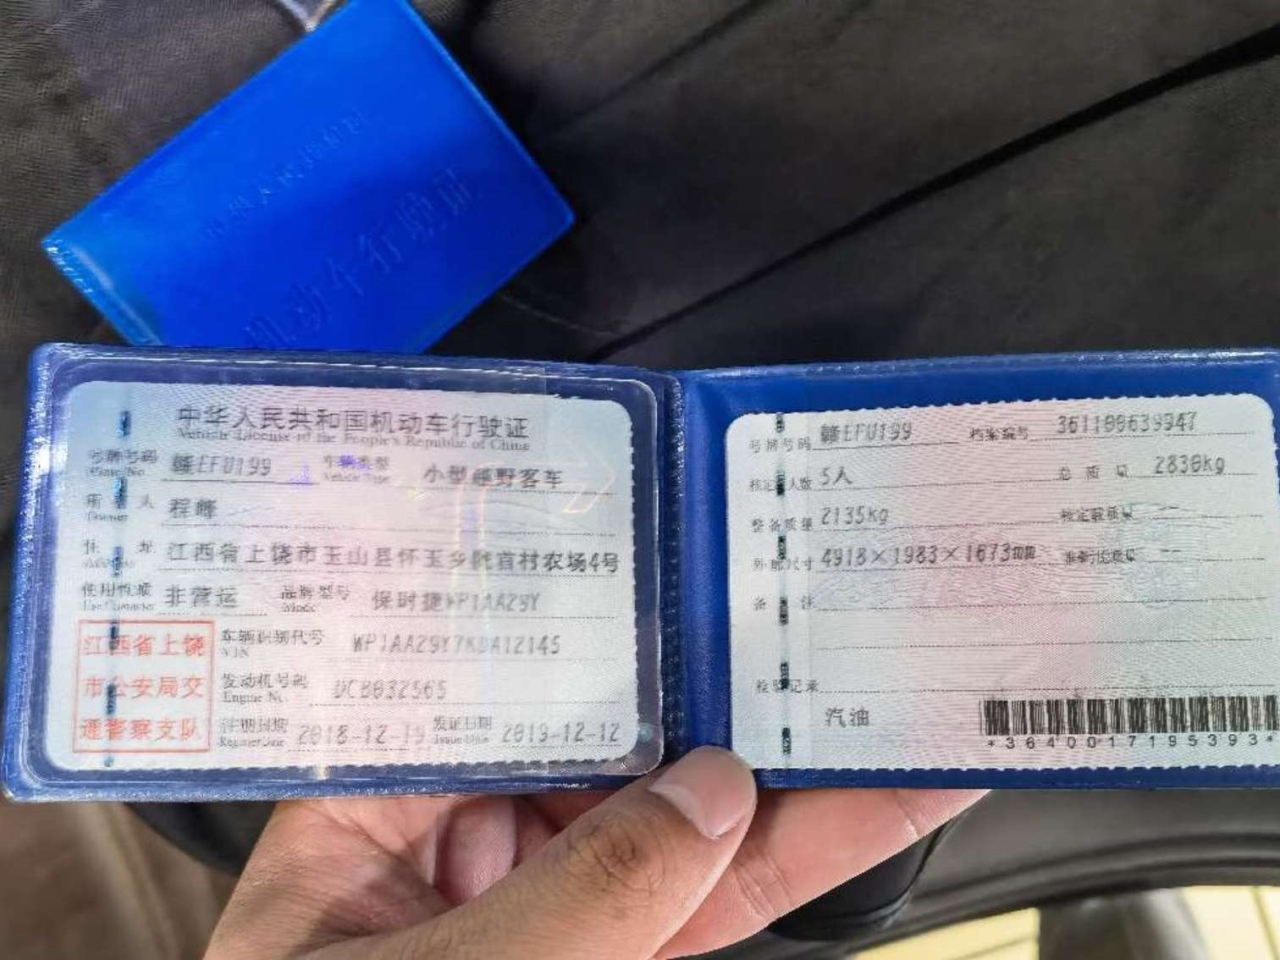 中华人民共和国
机动车行驶证
中华人民共和国机动车行驶证
Vehicle License of the People's Republic of China
号牌号码 赣EFU199 车辆类型 小型越野客车
Plate No. Vehicle Type
所有人 程峰
Owner
住址 江西省上饶市玉山县怀玉乡陇首村农场4号
Address
使用性质 非营运 品牌型号 保时捷WP1AA29Y
Use Character Model
江西省上饶
市公安局交
通警察支队
车辆识别代号 WP1AA29Y7KDA12145
VIN
发动机号码 DCB032565
Engine No.
注册日期 2018-12-19 发证日期 2019-12-12
Register Date Issue Date
号牌号码 赣EFU199 档案编号 361100639947
核定人数 5人 总质量 2830kg
整备质量 2135kg 核定载质量 --
外廓尺寸 4918×1983×1673mm 准牵引总质量 --
备注
检验记录
汽油
*3640017195393*